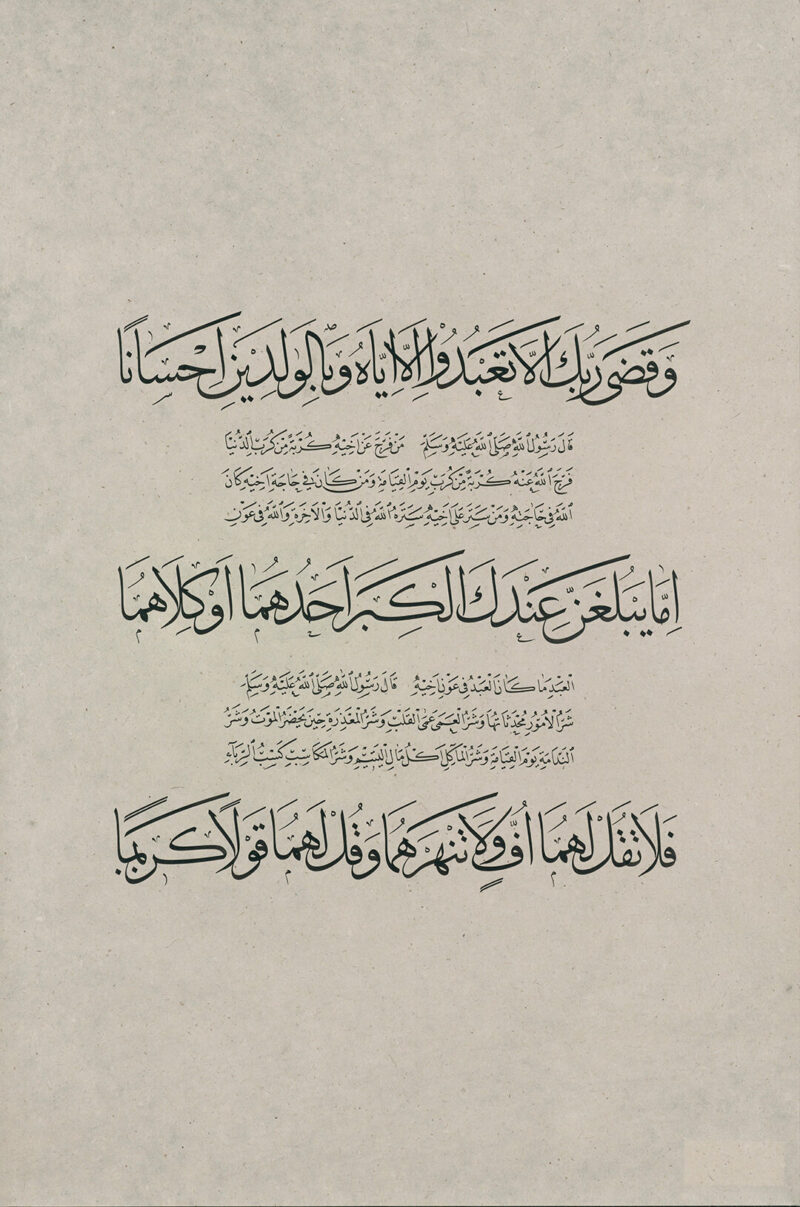 وَقَضَى رَبُّكَ اَلَّا تَعْبُدُوْا اِلَّا اِيَّاهُ وَبِالْوَالِدَيْنِ اِحْسَانًا
قَالَ رَسُولُ اللهِ صَلَّى اللهُ عَلَيْهِ وَسَلَّمَ مَنْ فَرَّجَ عَنْ اَخِيْهِ كُرْبَةً مِنْ كُرَبِ الدُّنْيَا
فَرَّجَ اللهُ عَنْهُ كُرْبَةً مِنْ كُرَبِ يَوْمِ الْقِيَامَةِ وَمَنْ كَانَ فِي حَاجَةِ اَخِيْهِ كَانَ
اللهُ فِي حَاجَتِهِ وَمَنْ سَتَرَ عَلَى اَخِيْهِ سَتَرَهُ اللهُ فِي الدُّنْيَا وَالْاٰخِرَةِ وَاللهُ فِي عَوْنِ
اِمَّا يَبْلُغَنَّ عِنْدَكَ الْكِبَرَ اَحَدُهُمَا اَوْ كِلَاهُمَا
الْعَبْدِ مَا كَانَ الْعَبْدُ فِي عَوْنِ اَخِيْهِ قَالَ رَسُولُ اللهِ صَلَّى اللهُ عَلَيْهِ وَسَلَّمَ
شَرُّ الْاُمُوْرِ مُحْدَثَاتُهَا وَشَرُّ الْعَمَى عَمَى الْقَلْبِ وَشَرُّ الْمَعْذِرَةِ حِيْنَ يَحْضُرُ الْمَوْتُ وَشَرُّ
النَّدَامَةِ يَوْمَ الْقِيَامَةِ وَشَرُّ الْمَاٰكِلِ اَكْلُ مَالِ الْيَتِيْمِ وَشَرُّ الْمَكَاسِبِ كَسْبُ الرِّبَاءِ
فَلَا تَقُلْ لَهُمَا اُفٍّ وَلَا تَنْهَرْهُمَا وَقُلْ لَهُمَا قَوْلًا كَرِيْمًا